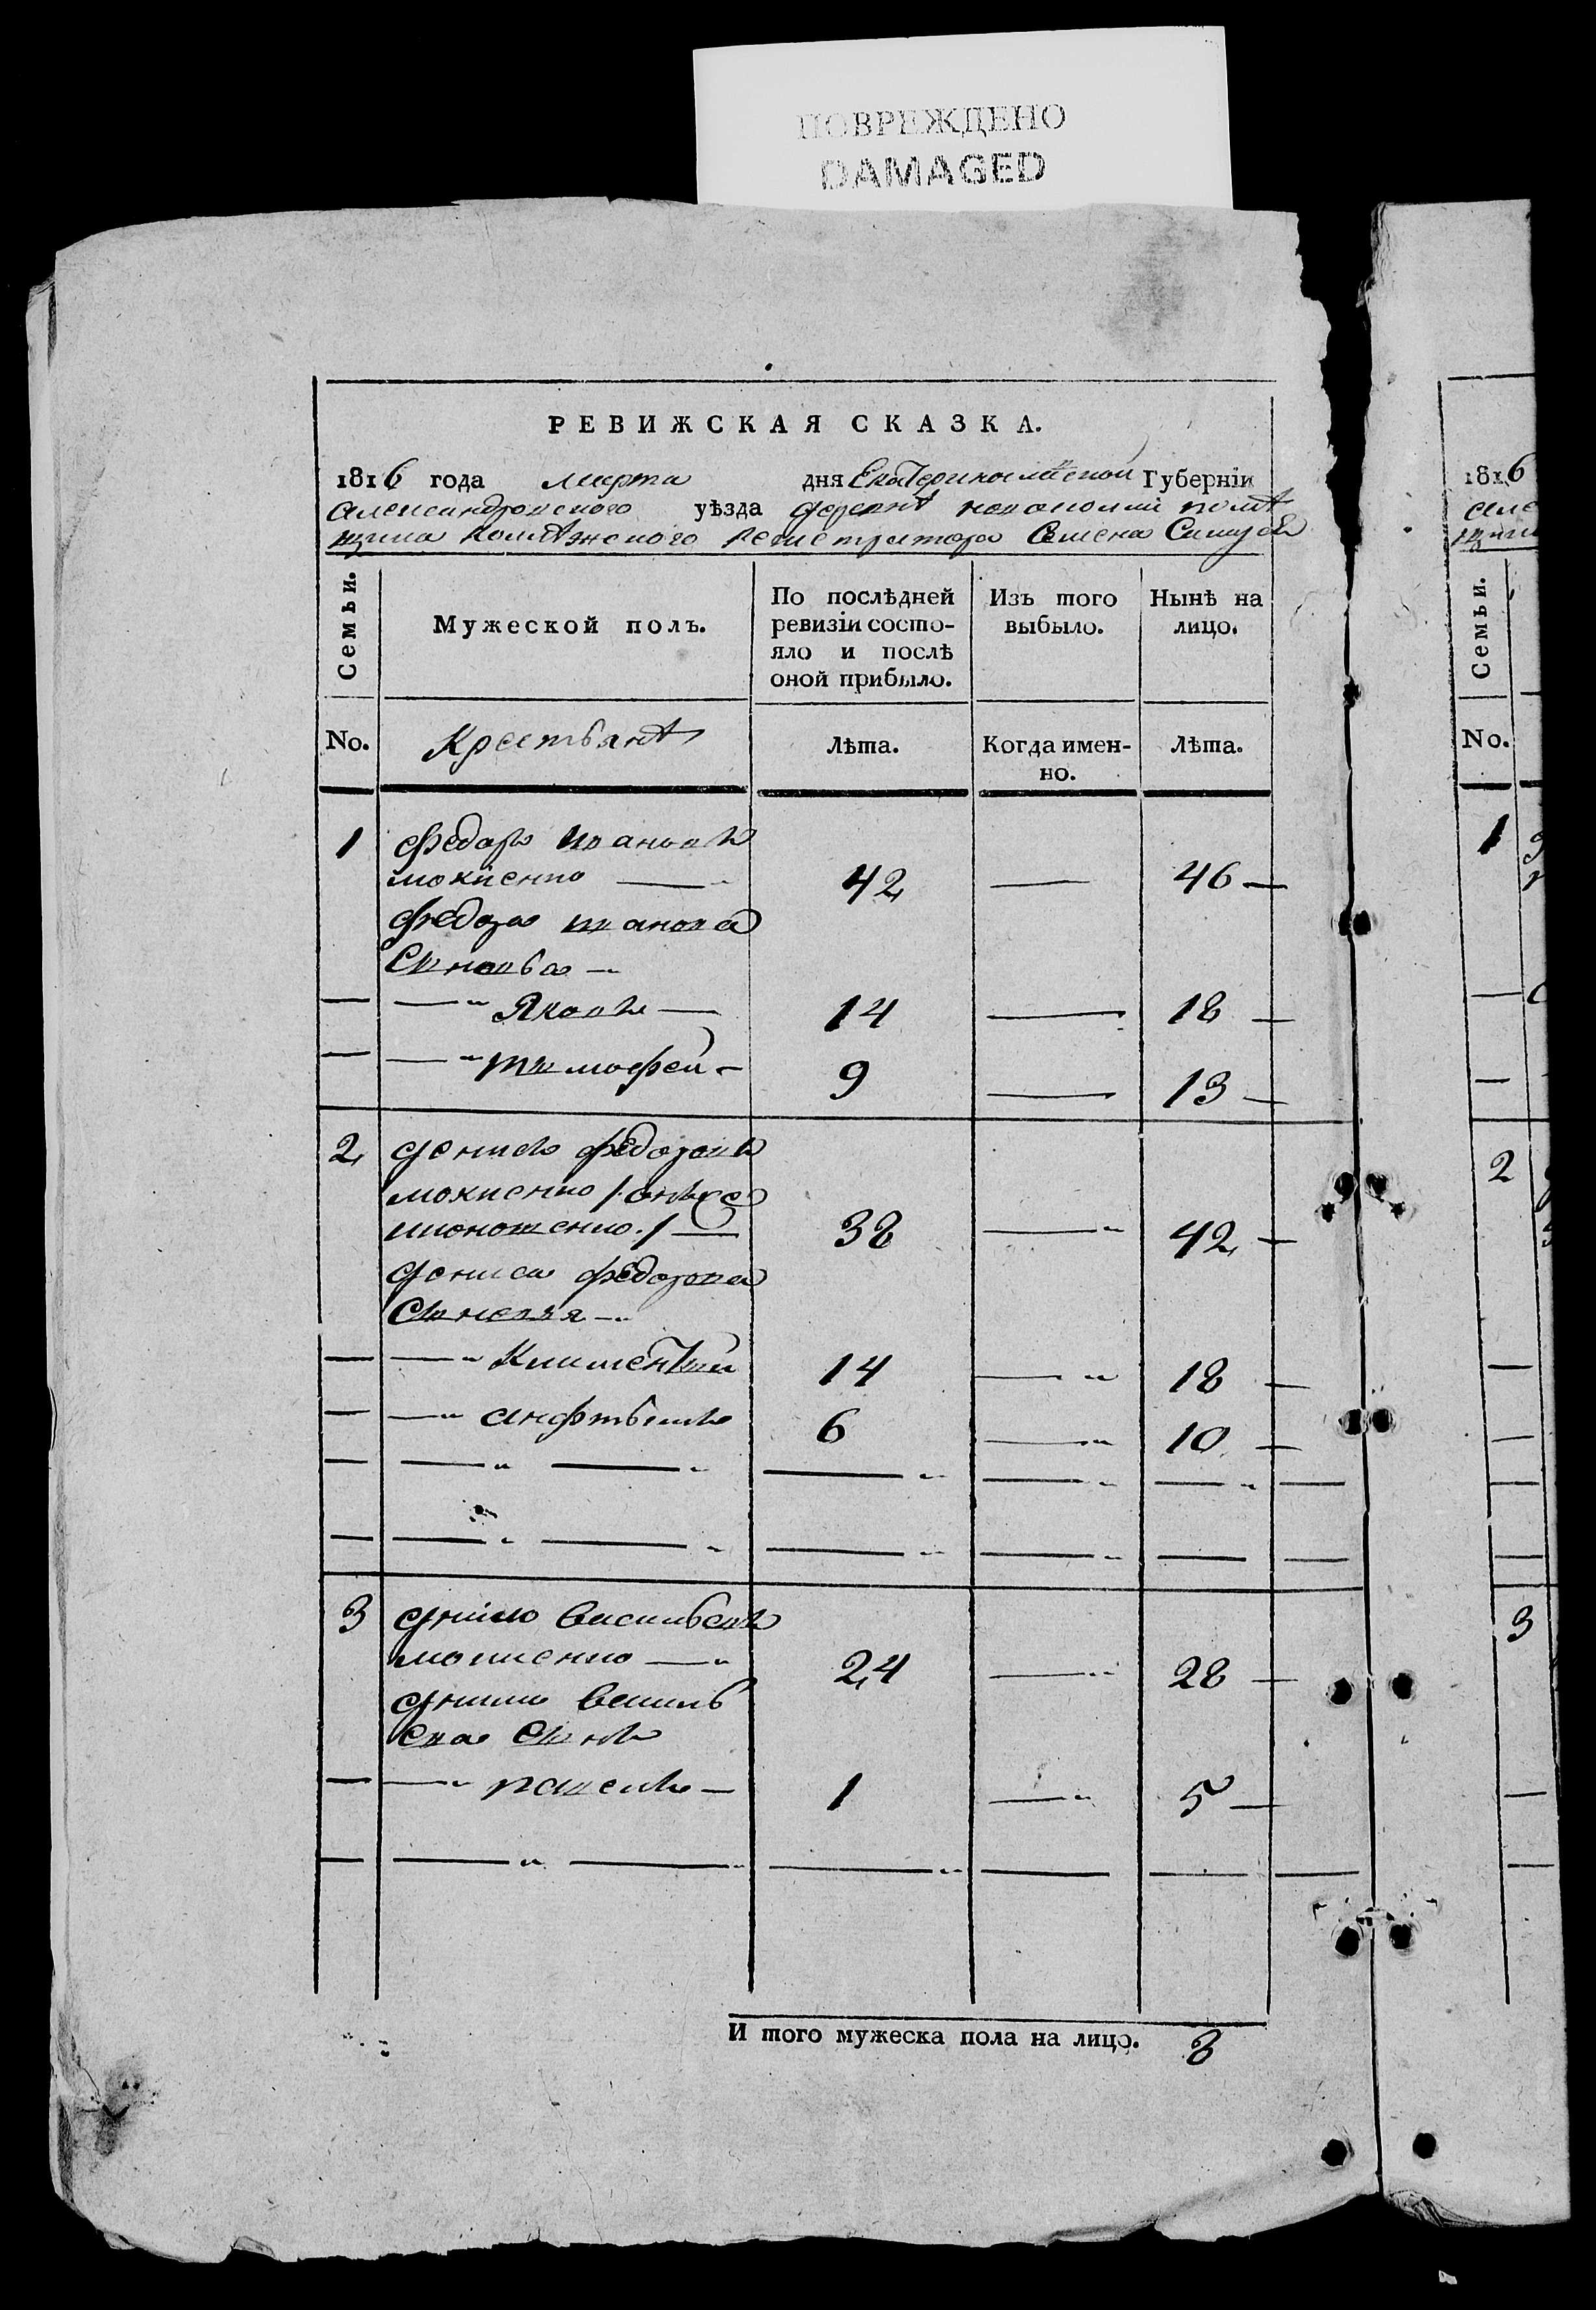 ПОВРЕЖДЕНО
DAMAGED
РЕВИЖСКАЯ СКАЗКА.
1816 года марта дня Екатеринославской Губерніи
Александровского уѣзда деревнѣ помѣ
щика Колѣжского Регистратора Семена
Семьи.
Мужеской полъ.
По послѣдней ревизіи состо-
яло и послѣ
оной прибыло.
Изъ того
выбыло.
Нынѣ на
лицо.
No.
Крестьянѣ
Лѣта.
Когда имен-
но.
Лѣта.
1 Федоръ Ивановъ
мокіенко 42 46
Федора Иванова
Сыновья
Яковъ 14 18
тимофей 9 13
2 Денисъ Федоровъ
мокиенко
38 42
Дениса Федорова
Сыновья
Климентий 14 18
6 10
3 Васильевъ
24 28
Василь
ева Сынъ
павелъ 1 5
И того мужеска пола на лицо. 8
1816
Семьи.
No.
1
2
3